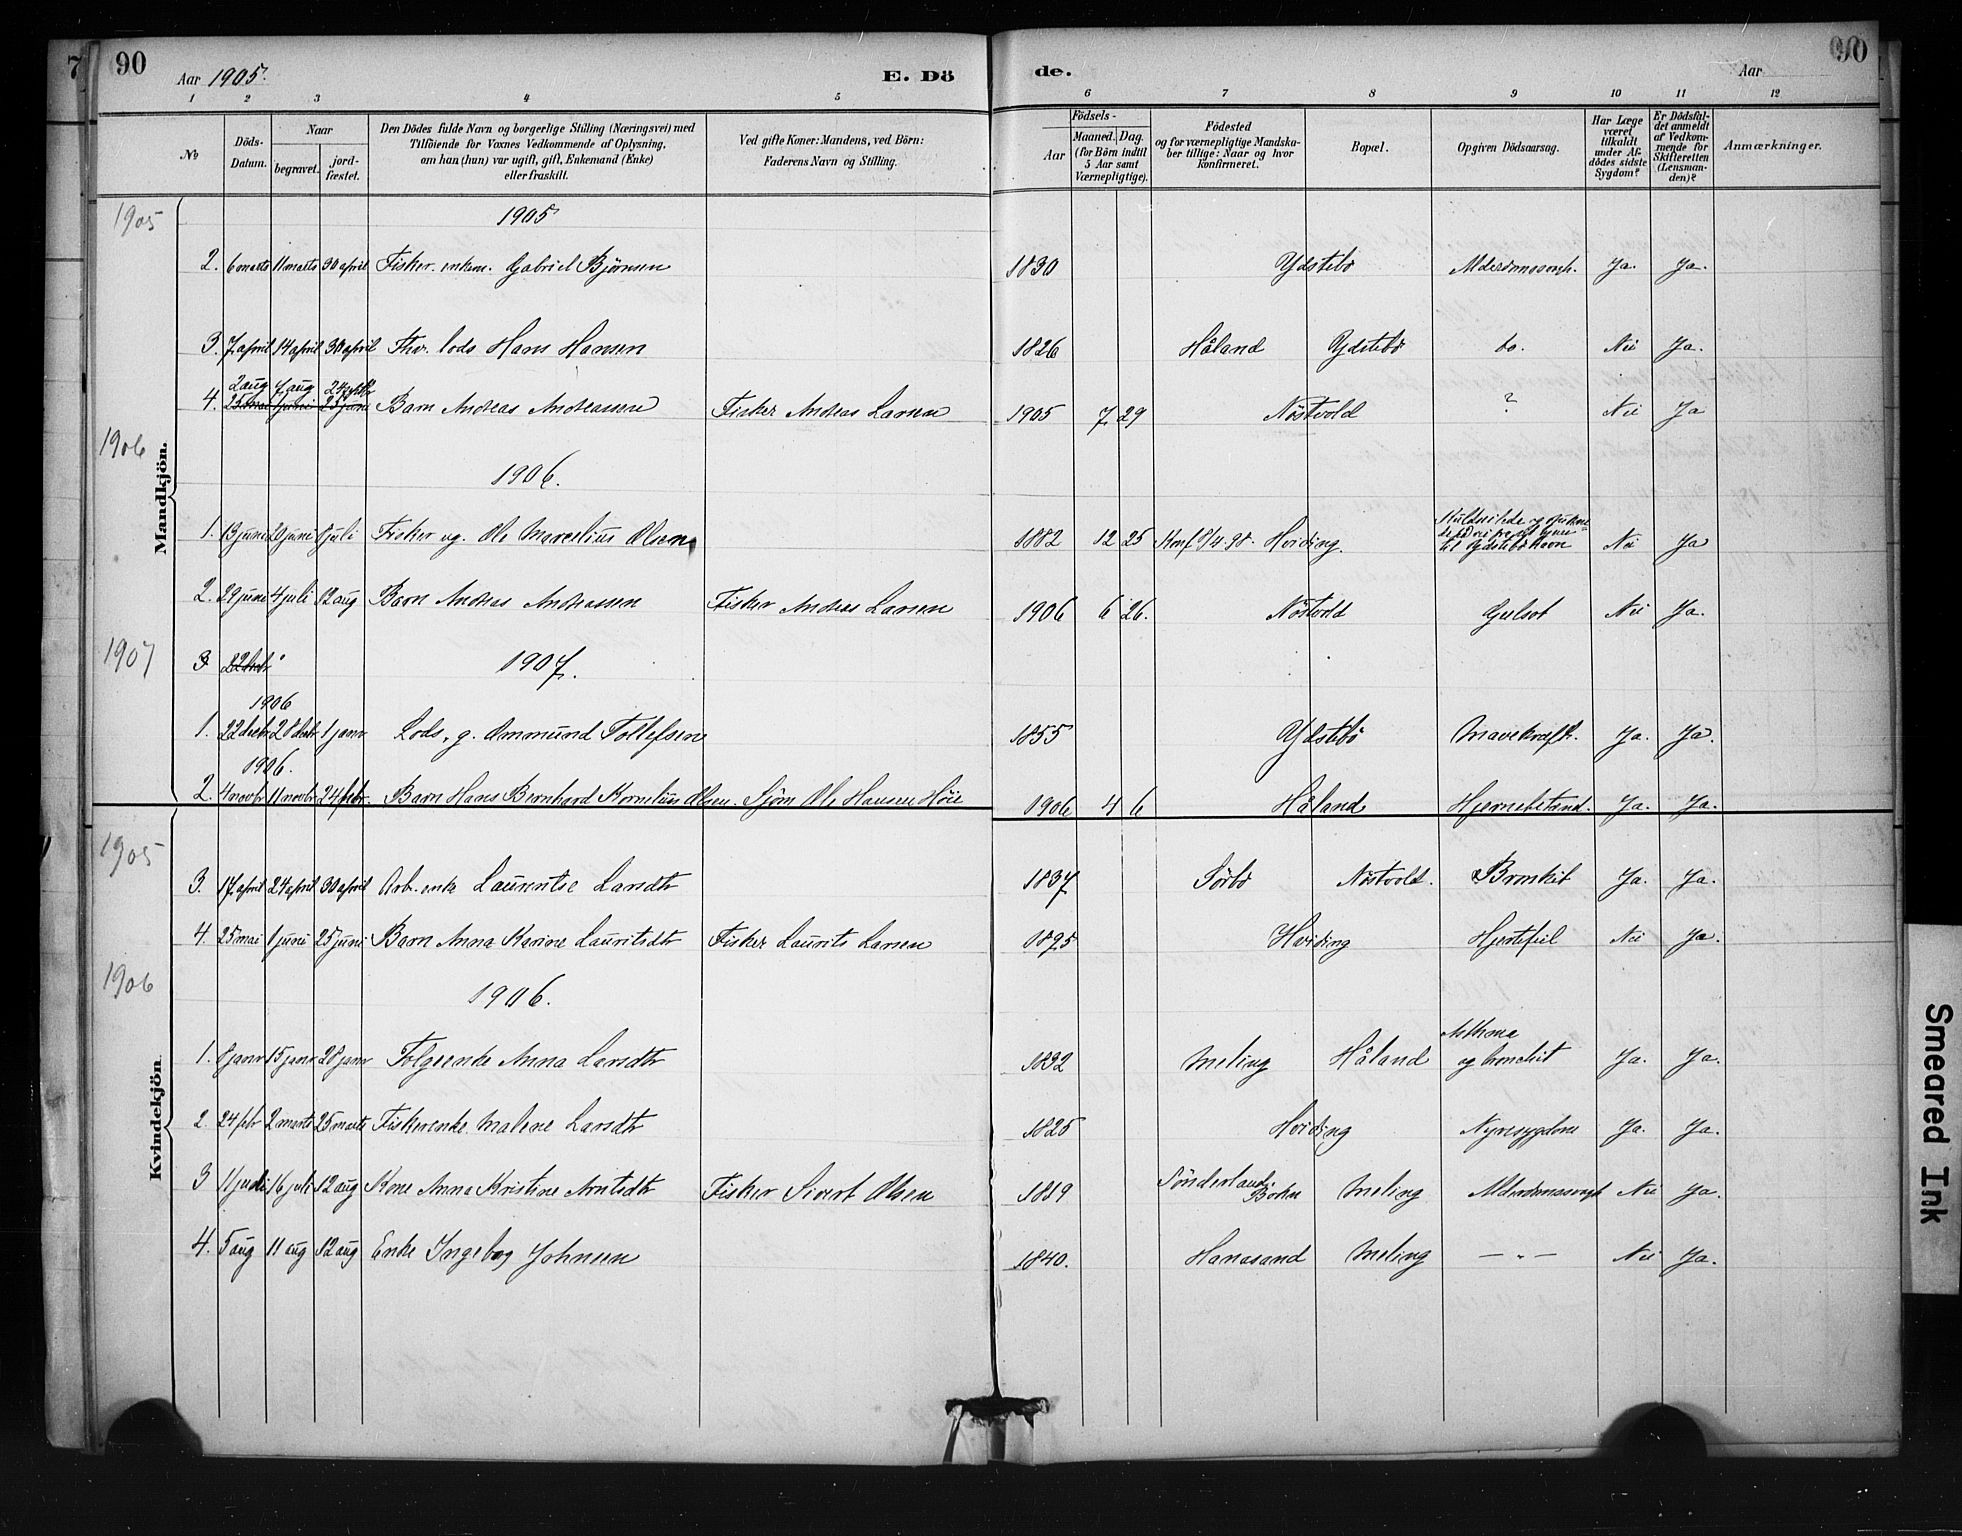 7
90
Aar 1905.
E. Dö
de.
Aar
90
1 2 3 4 5 6 7 8 9 10 11 12
No
Döds-
Datum.
Naar
begravet.
jord-
fæstet.
Den Dödes fulde Navn og borgerlige Stilling (Næringsvei) med
Tilföiende for Voxnes Vedkommende af Oplysning,
om han (hun) var ugift, gift, Enkemand (Enke)
eller fraskilt.
Ved gifte Koner: Mandens, ved Börn:
Faderens Navn og Stilling.
Födsels-
Aar
Maaned. Dag.
(for Börn indtil
5 Aar samt
Værnepligtige).
Födested
og for værnepligtige Mandska-
ber tillige: Naar og hvor
konfirmeret.
Bopæl.
Opgiven Dödsaarsag.
Har Læge
været
tilkaldt
under Af-
dödes sidste
Sygdom?
Er Dödsfal-
det anmeldt
af Vedkom-
mende for
Skifteretten
(Lensman-
den)?
Anmærkninger.
Mandkjön.
1905
1905
2. 6 marts 11 marts 30 april Fisker. enkem. Gabriel Bjørnsen 1830 Ydstebö Alderdomssvagh. Ja. Ja.
3. 7 april 14 april 30 april Fhv. lods Hans Hansen 1826 Håland Ydstebö do. Nei Ja.
2 aug 7 aug 24 septbr
4. 25 mai 1 juni 25 juni Barn Andreas Andreassen Fisker Andreas Larsen 1905 7 29 Nöstvold ? Nei Ja
1906
1906.
1. 13 juni 20 juni 8 juli Fisker ug. Ole Marselius Olsen 1882 12 25 Konf 9/4 98. Hviding. til Ydstebö havn Nei Ja
2. 29 juni 4 juli 12 aug Barn Andreas Andreassen Fisker Andreas Larsen 1906 6 26. Nöstvold Gulsot Nei Ja.
1907
3 22 decbr 1907.
1906
1. 22 decbr 28 decbr 1 janr Lods, g. Ommund Tollefsen 1855 Ydstebö Mavekræft. Ja. Ja.
1906.
2. 4 novbr 11 novbr 24 febr. Barn Hans Bernhard Kornelius Olsen. Sjöm Ole Hansen Höie 1906 4 6 Håland Hjernebetænd. Ja. Ja.
Kvindekjön
1905
3. 17 april 24 april 30 april Arb. enke Laurentse Larsdtr 1837 Sörbö Nöstvold. Bronkit Ja. Ja.
4. 25 mai 1 juni 25 juni Barn Anna Karine Lauritsdtr Fisker Laurits Larsen 1895 Hviding Hjertefeil Nei Ja.
1906
1906.
1. 8 janr 15 janr 28 janr Folgeenke Anna Larsdtr 1832 Meling Håland Asthma
og bronchit Ja. Ja.
2. 24 febr 2 marts 25 marts Fiskerenke Malene Larsdtr 1825 Hviding Nyresygdom Ja. Ja.
3 11 juli 16 juli 12 aug Kone Anna Kristine Arntsdtr Fisker Sivert Olsen 1819 Sönderland Meling Alderdomssvagh Nei Ja.
4. 5 aug 11 aug 12 aug Enke Ingebog Johnsen 1840. Hanasand Meling — „ — Nei Ja.
Smeared Ink